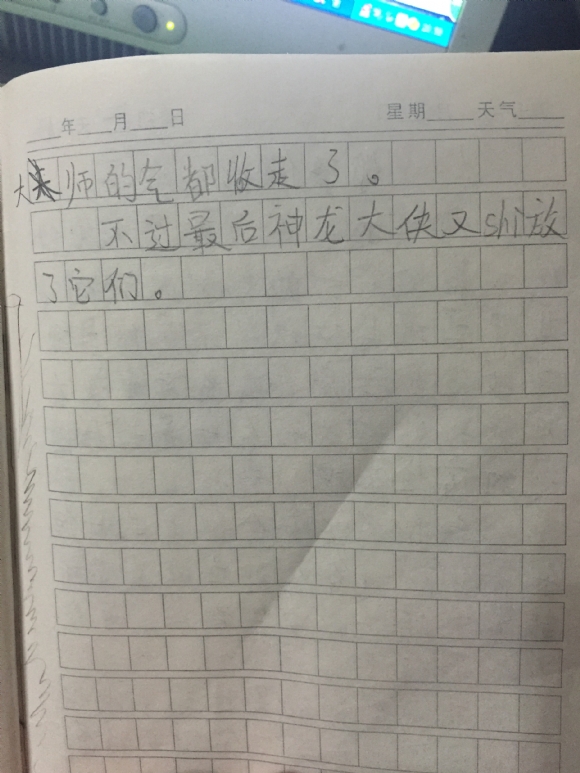 年 月 日 星期 天气
大师的气都收走了。
不过最后神龙大侠又shi放
了它们。